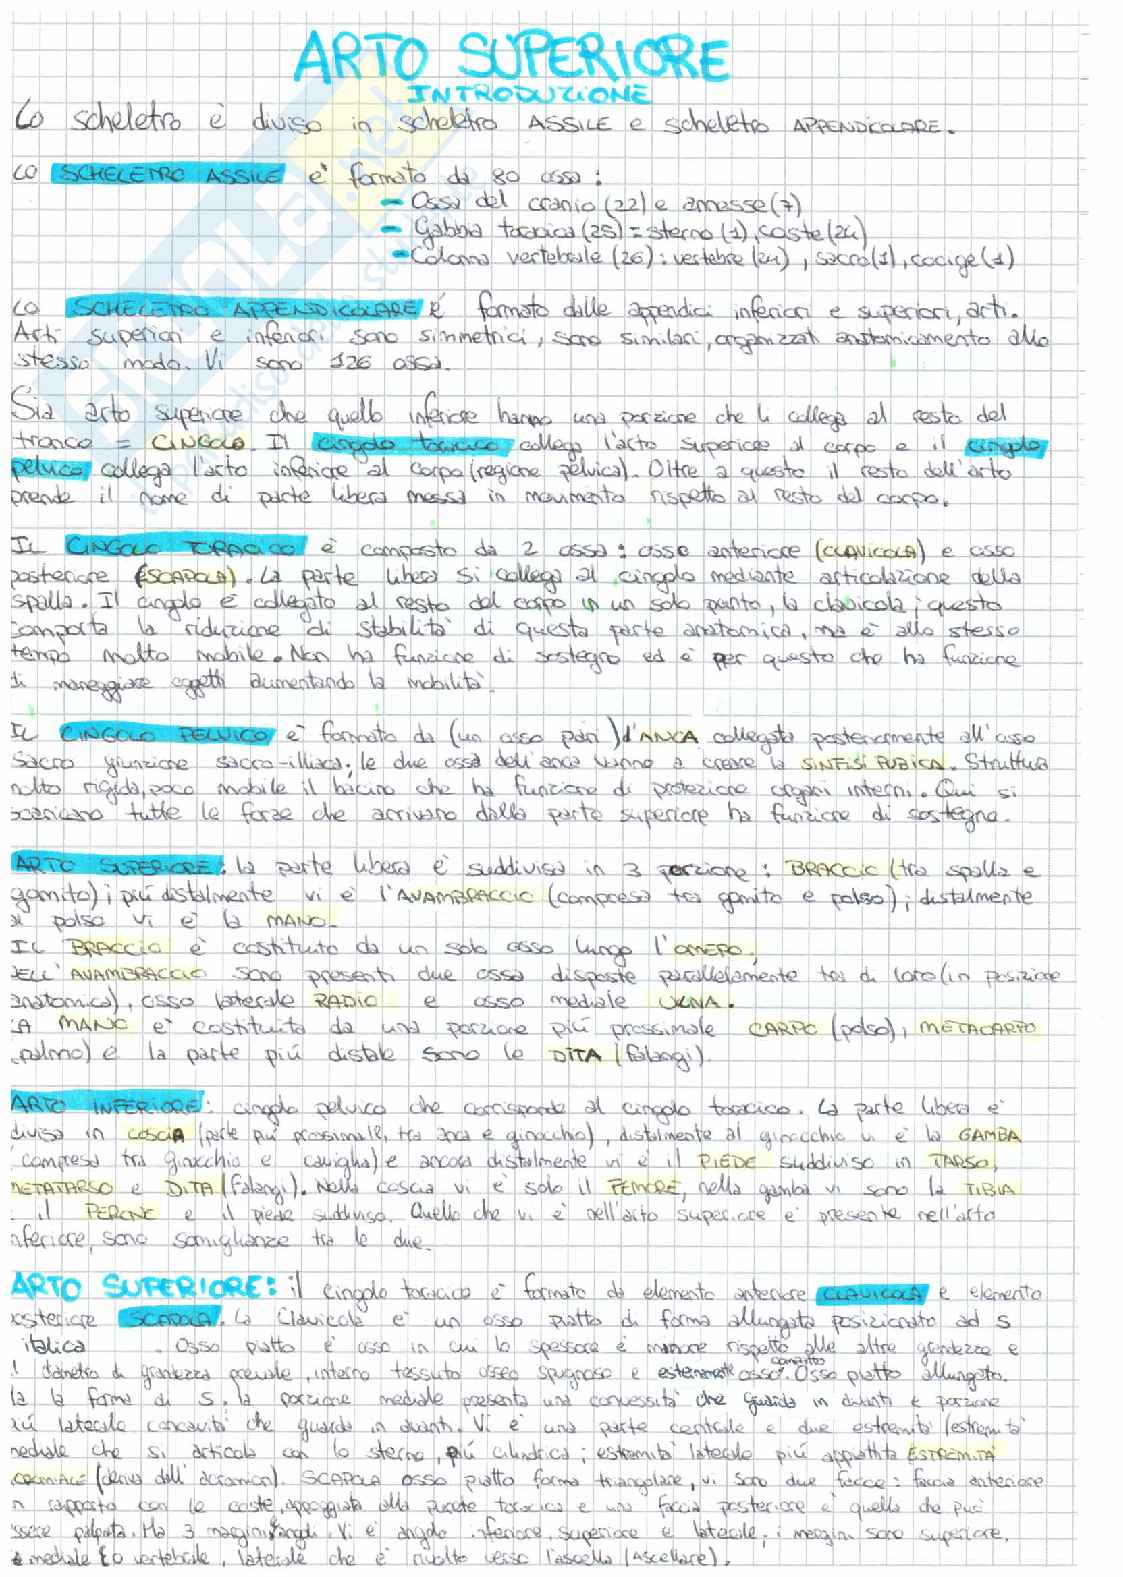 ARTO SUPERIORE
INTRODUZIONE
Lo scheletro è diviso in scheletro ASSILE e scheletro APPENDICOLARE.
LO SCHELETRO ASSILE è formato da 80 ossa:
- Ossa del cranio (22) e annesse (7)
- Gabbia toracica (25) = sterno (1), coste (24)
- Colonna vertebrale (26): vertebre (24), sacro (1), coccige (1)
LO SCHELETRO APPENDICOLARE è formato dalle appendici inferiori e superiori, arti.
Arti superiori e inferiori sono simmetrici, sono similari, organizzati anatomicamento allo
stesso modo. Vi sono 126 ossa.
Sia arto superiore che quello inferiore hanno una porzione che li collega al resto del
tronco = CINGOLO. Il cingolo toracico collega l'arto superiore al corpo e il cingolo
pelvico collega l'arto inferiore al corpo (regione pelvica). Oltre a questo il resto dell'arto
prende il nome di parte libera messa in movimento rispetto al resto del corpo.
IL CINGOLO TORACICO è composto da 2 ossa: osso anteriore (CLAVICOLA) e osso
posteriore (SCAPOLA). La parte libera si collega al cingolo mediante articolazione della
spalla. Il cingolo è collegato al resto del corpo in un solo punto, la clavicola; questo
comporta la riduzione di stabilità di questa parte anatomica, ma è allo stesso
tempo molto mobile. Non ha funzione di sostegno ed è per questo che ha funzione
di maneggiare oggetti aumentando la mobilità.
IL CINGOLO PELVICO è formato da (un osso pari) d'ANCA collegato posteriormente all'osso
sacro giunzione sacro-illiaca; le due ossa dell'anca vanno a creare la SINFISI PUBICA. Struttura
molto rigida, poco mobile il bacino che ha funzione di protezione organi interni. Qui si
scaricano tutte le forze che arrivano dalla parte superiore ha funzione di sostegno.
ARTO SUPERIORE: la parte libera è suddivisa in 3 porzione: BRACCIO (tra spalla e
gomito); più distalmente vi è l'AVAMBRACCIO (compresa tra gomito e polso); distalmente
al polso vi è la MANO.
IL BRACCIO è costituito da un solo osso lungo l'OMERO,
NELL'AVAMBRACCIO sono presenti due ossa disposte parallelamente tra di loro (in posizione
anatomica), osso laterale RADIO e osso mediale ULNA.
LA MANO è costituita da una porzione più prossimale CARPO (polso), METACARPO
(palmo) e la parte più distale sono le DITA (falangi).
ARTO INFERIORE: cingolo pelvico che corrisponde al cingolo toracico. La parte libera è
divisa in COSCIA (parte più prossimale, tra anca e ginocchio), distalmente al ginocchio vi è la GAMBA
(compresa tra ginocchio e caviglia) e ancora distalmente vi è il PIEDE suddiviso in TARSO,
METATARSO e DITA (falangi). Nella coscia vi è solo il FEMORE, nella gamba vi sono la TIBIA
il PERONE e il piede suddiviso. Quello che vi è nell'arto superiore è presente nell'arto
inferiore, sono somiglianze tra le due.
ARTO SUPERIORE: il cingolo toracico è formato da elemento anteriore CLAVICOLA e elemento
posteriore SCAPOLA. La Clavicola è un osso piatto di forma allungata posizionato ad S
italica. Osso piatto è osso in cui lo spessore è minore rispetto alle altre grandezze e
diametro di grandezza prevale, interno tessuto osseo spugnoso e esternamente osso compatto. Osso piatto allungato.
Ha la forma di S, la porzione mediale presenta una convessità che guarda in avanti e porzione
più laterale concavità che guarda in avanti. Vi è una parte centrale e due estremità (estremità
mediale che si articola con lo sterno, più cilindrica; estremità laterale più appiattita ESTREMITÀ
CROMIALE (deriva dall'acromion). SCAPOLA osso piatto forma triangolare, vi sono due facce: faccia anteriore
in rapporto con le coste, appoggiata alla parete toracica e una faccia posteriore è quella che può
essere palpata. Ha 3 margini/angoli. Vi è angolo inferiore, superiore e laterale; i margini sono superiore,
mediale o vertebrale, laterale che è rivolto verso l'ascella (ASCELLARE).